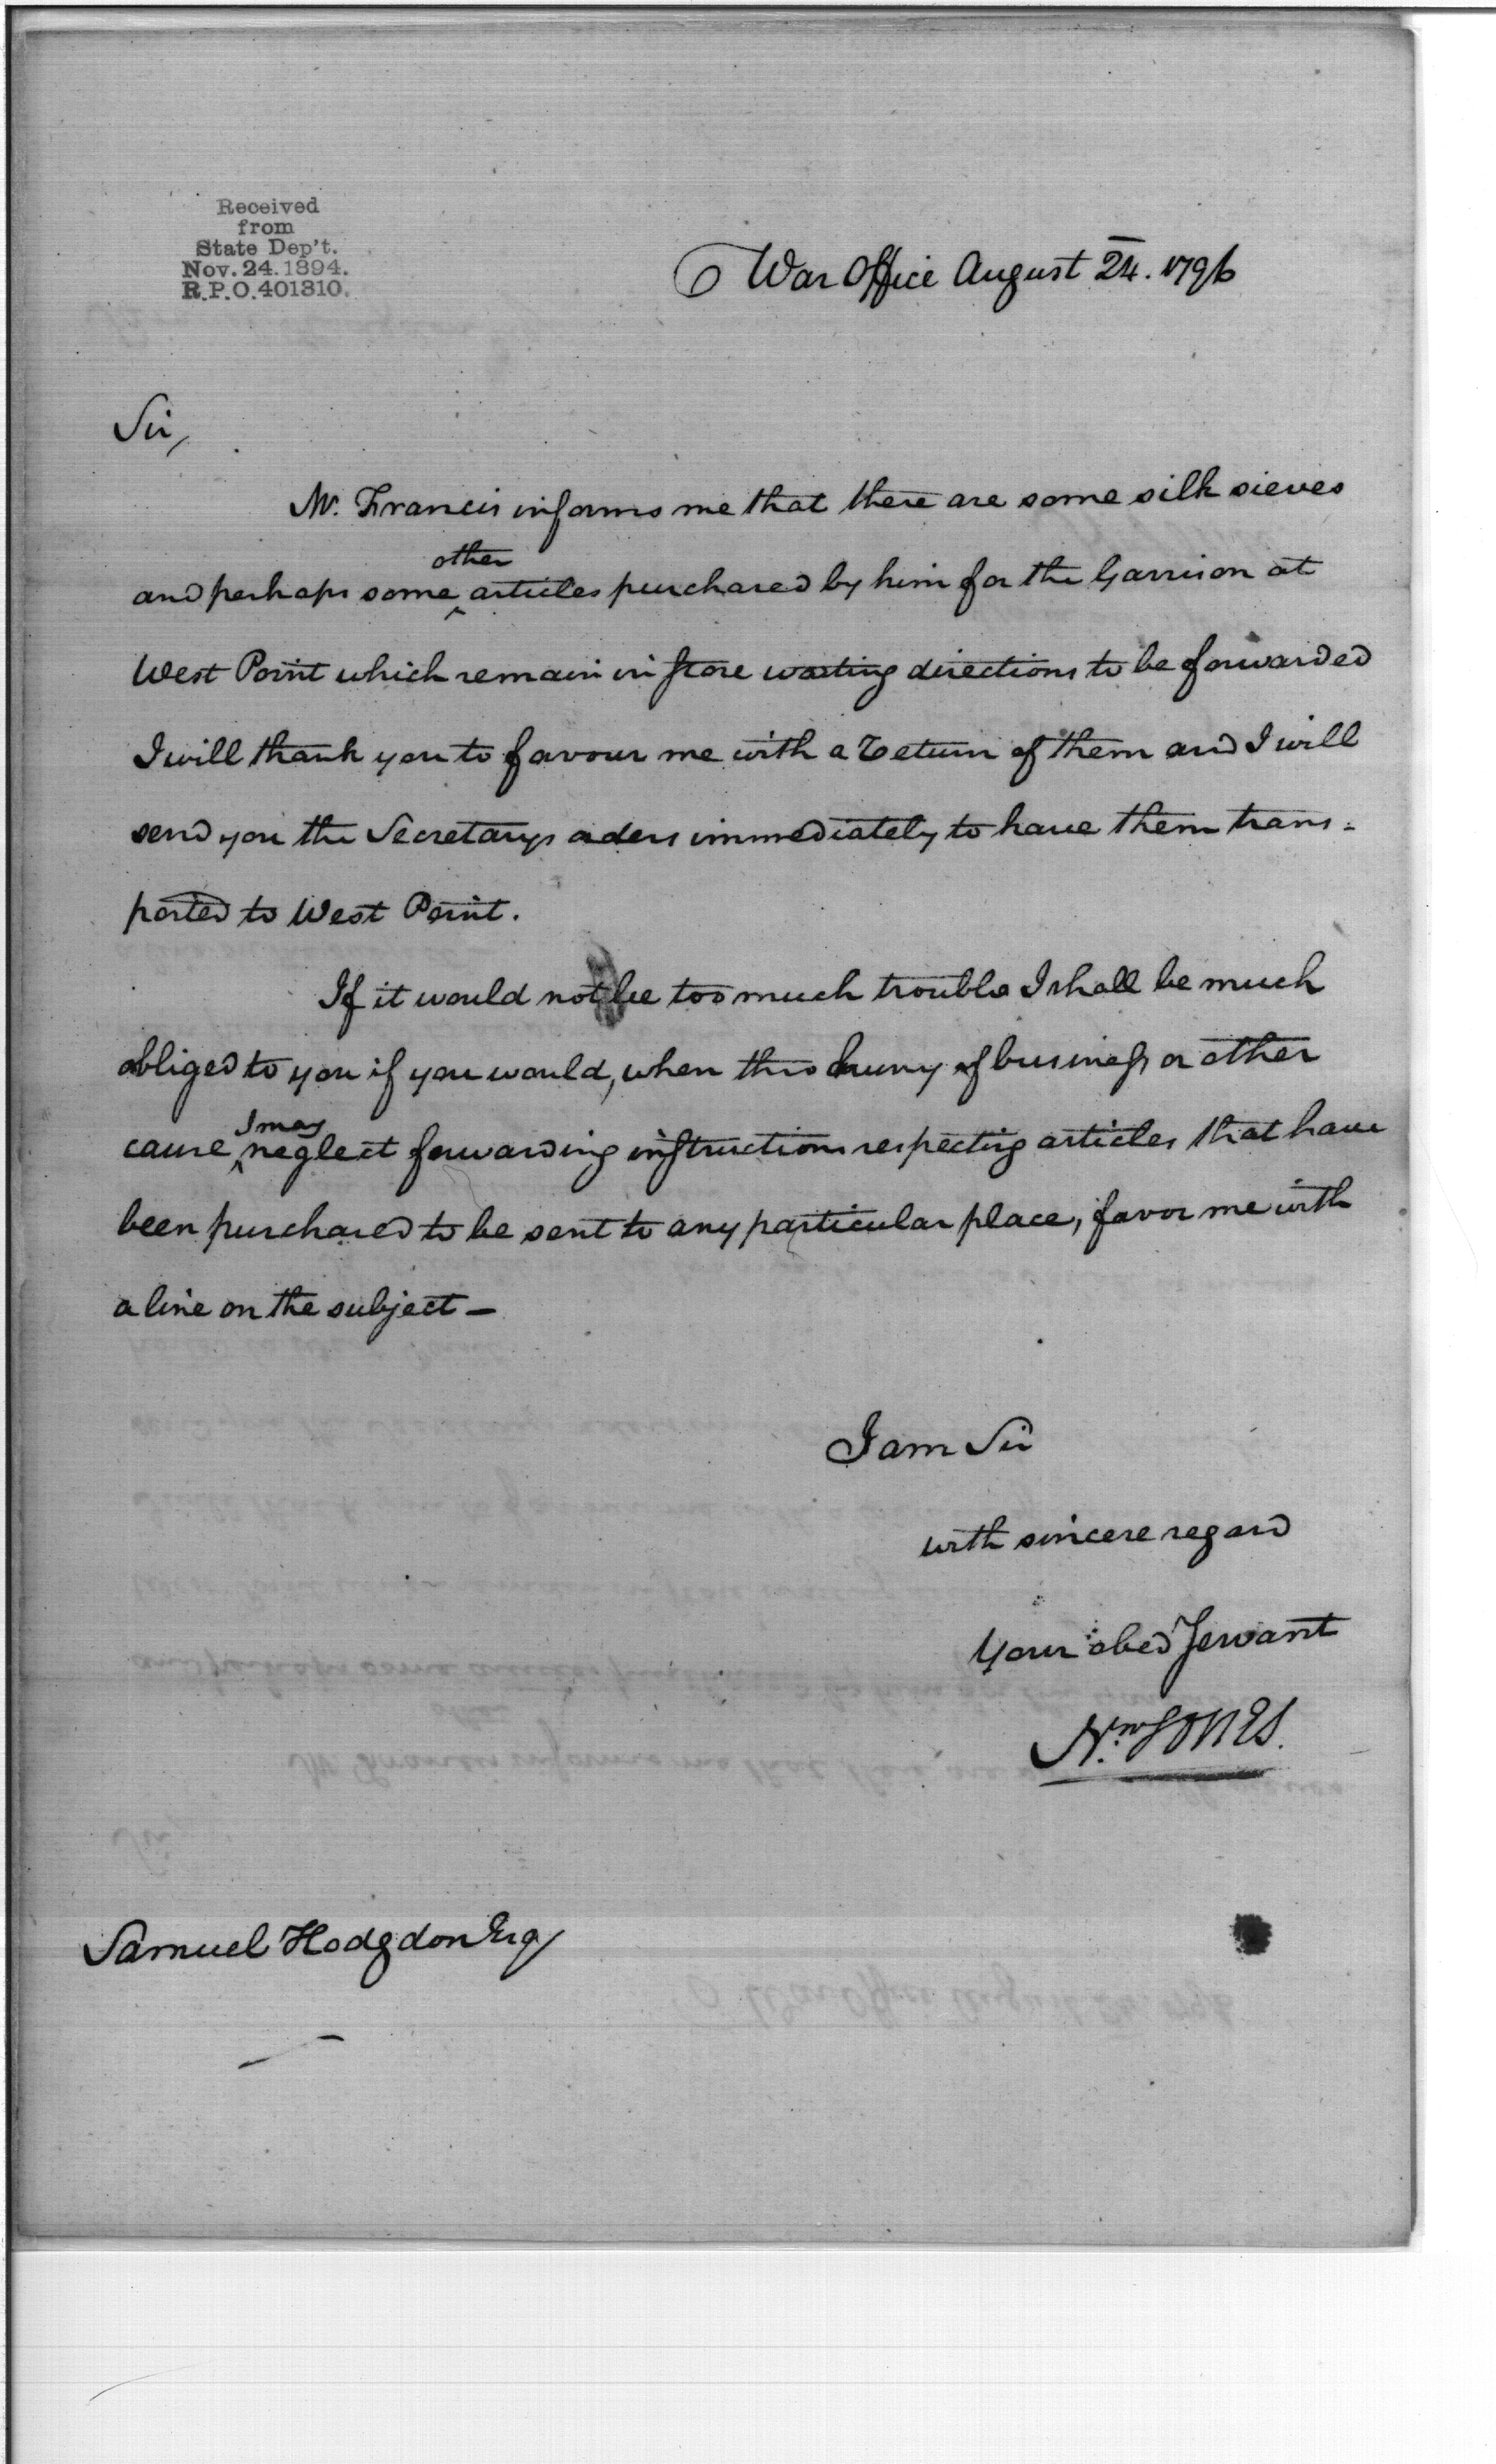 Received
from
State Dep't.
Nov. 24. 1894.
R.P.O. 401310.
War Office August 24. 1796
Sir,
Mr. Francis informs me that there are some silk sieves
other
and perhaps some ^ articles purchased by him for the Garrison at
West Point which remain in store waiting directions to be forwarded
I will thank you to favour me with a return of them and I will
send you the Secretarys orders immediately to have them trans-
ported to West Point.
If it would not be too much trouble I shall be much
obliged to you if you would, when thro hurry of business or other
I may
cause ^ neglect forwarding instructions respecting articles that have
been purchased to be sent to any particular place, favor me with
a line on the subject —
I am Sir
with sincere regard
Your obed Servant
Nn Jones.
Samuel Hodgdon Esq